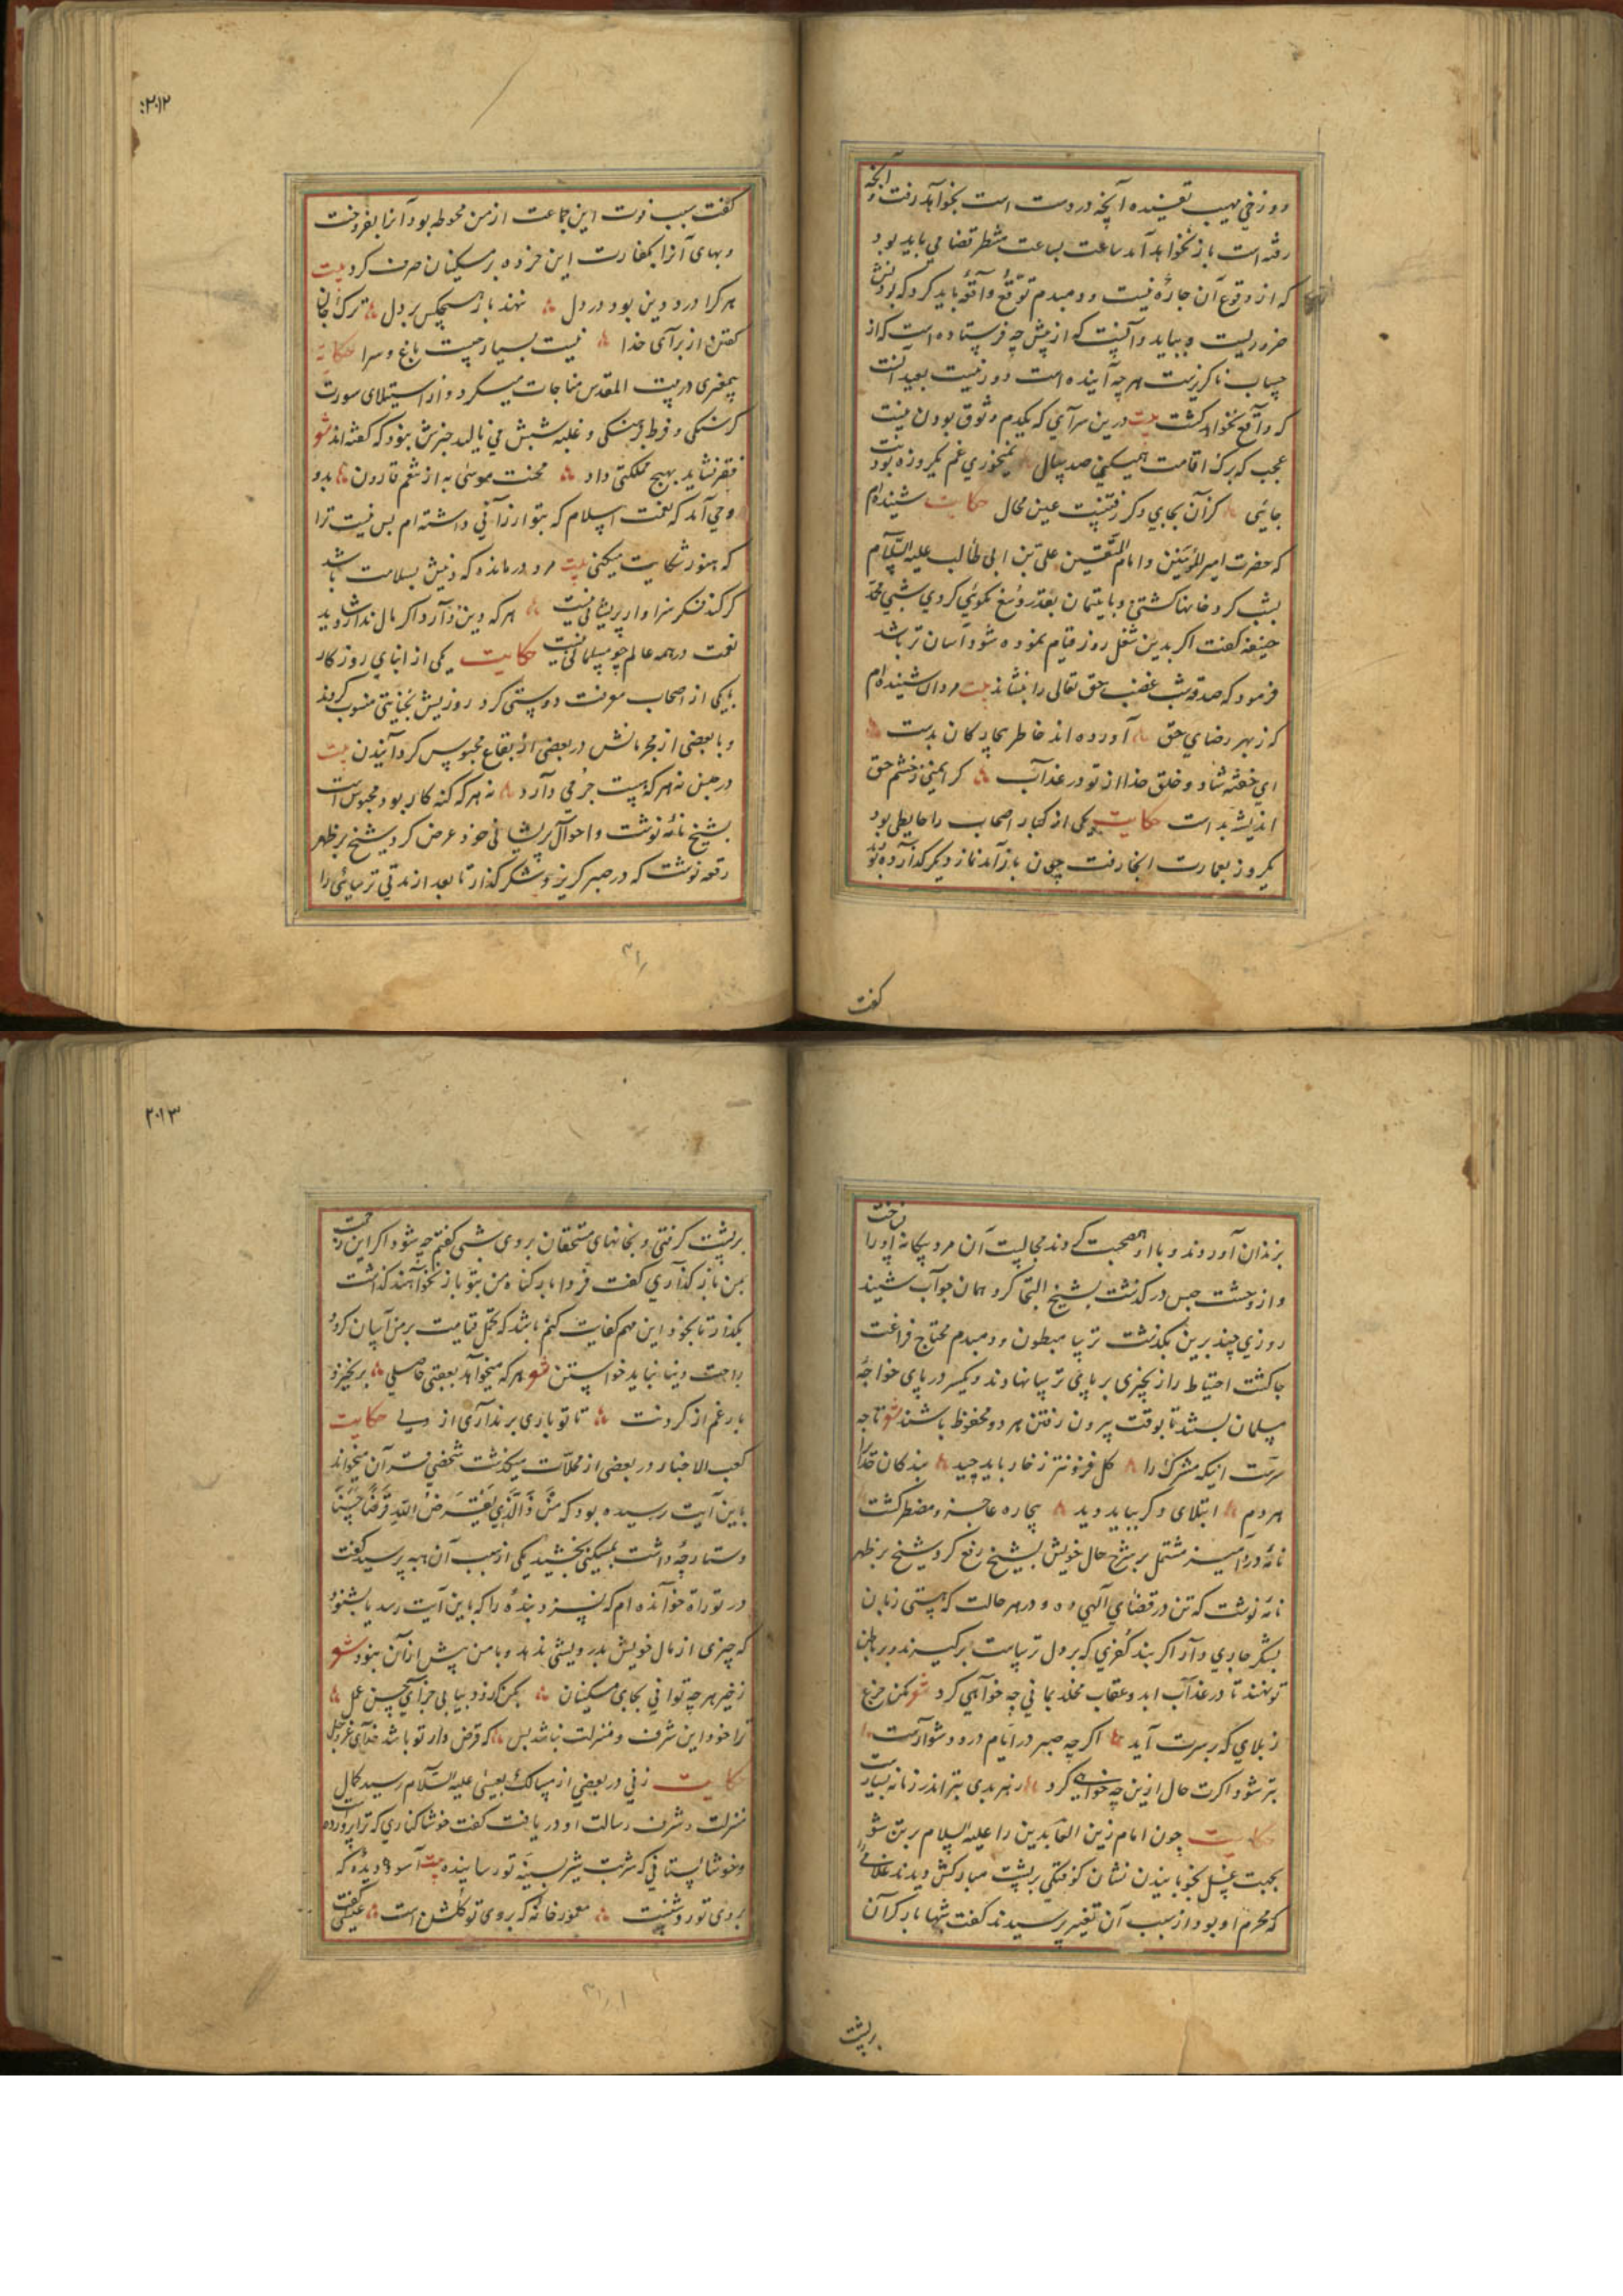 دوزخی مهیب تعبیده آنچه در دست است بخواهد رفت و آنچه
رفته است باز نخواهد آمد ساعت بساعت منتظر قضا می باید بود
که از وقوع آن چاره نیست و دمبدم توقع واقعه باید کرد که بودنش
ضروریست و بباید دانست که از پیش چه فرستاده است که از
حساب ناگزیرست هرچه آینده است دور نیست بعید آنست
که واقع نخواهد گشت بیت درین سرای که یکدم وثوق بودن نیست
عجب که برگ اقامت همیکنی صد سال نمیخوری غم یکروزه بودنت
جائی کز آن بجای دگر رفتنیست عین محال حکایت شنیده‌ام
که حضرت امیر المؤمنین و امام المتقین علی بن ابی طالب علیه السلام
بشب کرد خانها گشتی و با یتیمان بقدر وسع نکوئی کردی شبی محمد
حنیفه گفت اگر بدین شغل روز قیام نموده شود آسان تر باشد
فرمود که صدقه شب غضب حق تعالی را بنشاند بیت مردان شنیده‌ام
که ز بهر رضای حق آورده اند خاطر بیچارگان بدست
ای خفته شاد و خلق خدا از تو در عذاب گر ایمنی ز خشم حق
اندیشه بد است حکایت یکی از کبار اصحاب را حایطی بود
یکروز بعمارت انجا رفت چون باز آمد نماز دیگر گذارده بودند
گفت
۲۰۱۲
گفت سبب فوت این جماعت از من محوطه بود آنرا بفروخت
و بهای آنرا بکفارت این خرده بر مسکینان صرف کرد بیت
هر کرا درد دین بود در دل ننهد باز هیچکس بر دل ترک جان
گفتن از برای خدا نیست بسیار چیست باغ و سرا حکایة
پیغمبری در بیت المقدس مناجات میکرد و از استیلای سورت
گرسنگی و فرط برهنگی و غلبه شپش می نالید خبرش نبود که گفته اند شعر
فقر نشاید بهیچ مملکتی داد محنت موسی به از تنعم قارون بدو
وحی آمد که نعمت اسلام که بتو ارزانی داشته ام بس نیست ترا
که هنوز شکایت میکنی بیت مرد درمانده که دینش بسلامت باشد
گر کند شکر سزاوار پریشانی نیست هر که دین دارد اگر مال ندارد شاید
نعمت در همه عالم چو مسلمانی نیست حکایت یکی از ابنای روزگار
با یکی از اصحاب معرفت دوستی کرد روزیش بخیانتی منسوب کردند
و با بعضی از مجرمانش در بعضی از بقاع محبوس گردانیدند بیت
در حبس نه هر که هست جرمی دارد نه هر که گنه کار بود محبوس است
بشیخ نامه نوشت و احوال پریشانی خود عرض کرد شیخ بر ظهر
رقعه نوشت که در صبر گریز و شکر گذار تا بعد از مدتی ترسائی را
بزندان آوردند و با او همصحبت کردند مجالست آن مرد بیگانه او را
و از وحشت حبس در گذشت بشیخ التجا کرد همان جواب شنید
روزی چند برین بگذشت ترسا مبطون و دمبدم محتاج فراغت
جا گشت احتیاط را زنجیری بر پای ترسا نهادند و یکسر در پای خواجه
مسلمان بستند تا بوقت بیرون رفتن هر دو محفوظ باشند شعر تا چه
سرست اینکه مشرک را گل فزونتر ز خار باید چید بندگان خدا را
هر دم ابتلای دگر بباید دید بیچاره عاجز و مضطر گشت
نامه درد آمیز مشتمل بر شرح حال خویش بشیخ رفع کرد شیخ بر ظهر
نامه نوشت که تن در قضای الهی ده و در هر حالت که هستی زبان
بشکر جاری دار اگر بند کفری که بر دل ترساست برگیرند و بر باطن
تو نهند تا در عذاب ابد و عقاب مخلد بمانی چه خواهی کرد شعر مکن جزع
ز بلای که بر سرت آید اگر چه صبر در ایام درد دشوارست
بتر شود اگرت حال ازین چه خواهی کرد ز هر بدی بتر اندر زمانه بسیارست
حکایت چون امام زین العابدین را علیه السلام بر تن شو
بجهت غسل بخوابانیدن نشان کوفتگی بر پشت مبارکش دیدند غلامی
که محرم او بود از سبب آن تغییر پرسیدند گفت شبها بار گران
بر پشت
۲۰۱۳
بر پشت گرفتی و بخانهای مستحقان بردی شبی گفتم چه شود اگر این زحمت
بمن باز گذاری گفت فردا بار گناه من بتو باز نخواهند گذاشت
بگذار تا بخود این مهم کفایت کنم باشد که تحمل قیامت بر من آسان گردد
راحت دنیا نباید خواستن شعر هر که میخواهد بعقبی حاصلی بر نخیزد
بار غم از گردنت تا تو باری بر نداری از دلی حکایت
کعب الاحبار در بعضی از محلات میگذشت شخصی قرآن میخواند
باین آیت رسیده بود که مَن ذَا الَّذِی یُقْرِضُ اللهَ قَرْضًا حَسَنًا
دستارچه داشت بمسکینی بخشید یکی از سبب آن هبه پرسید گفت
در توراة خوانده ام که نسزد بنده را که باین آیت رسد یا بشنود
که چیزی از مال خویش بدرویشی ندهد و با من پیش از آن نبود شعر
ز خیر هر چه توانی بجای مسکینان بکن که زود بیابی جزای حسن عمل
ترا خود این شرف و منزلت نباشد بس که قرض دار تو باشد خدای عز و جل
حکایت زنی در بعضی از مسالک بعیسی علیه السلام رسید کمال
منزلت و شرف رسالت او دریافت گفت خوشا کناری که ترا پرورده است
و خوشا پستانی که شربت شیر بسینه تو رسانیده بیت آسوده دیده که
بروی تو روشنست معمور خانه که بروی تو گلشن است عیسی گفت